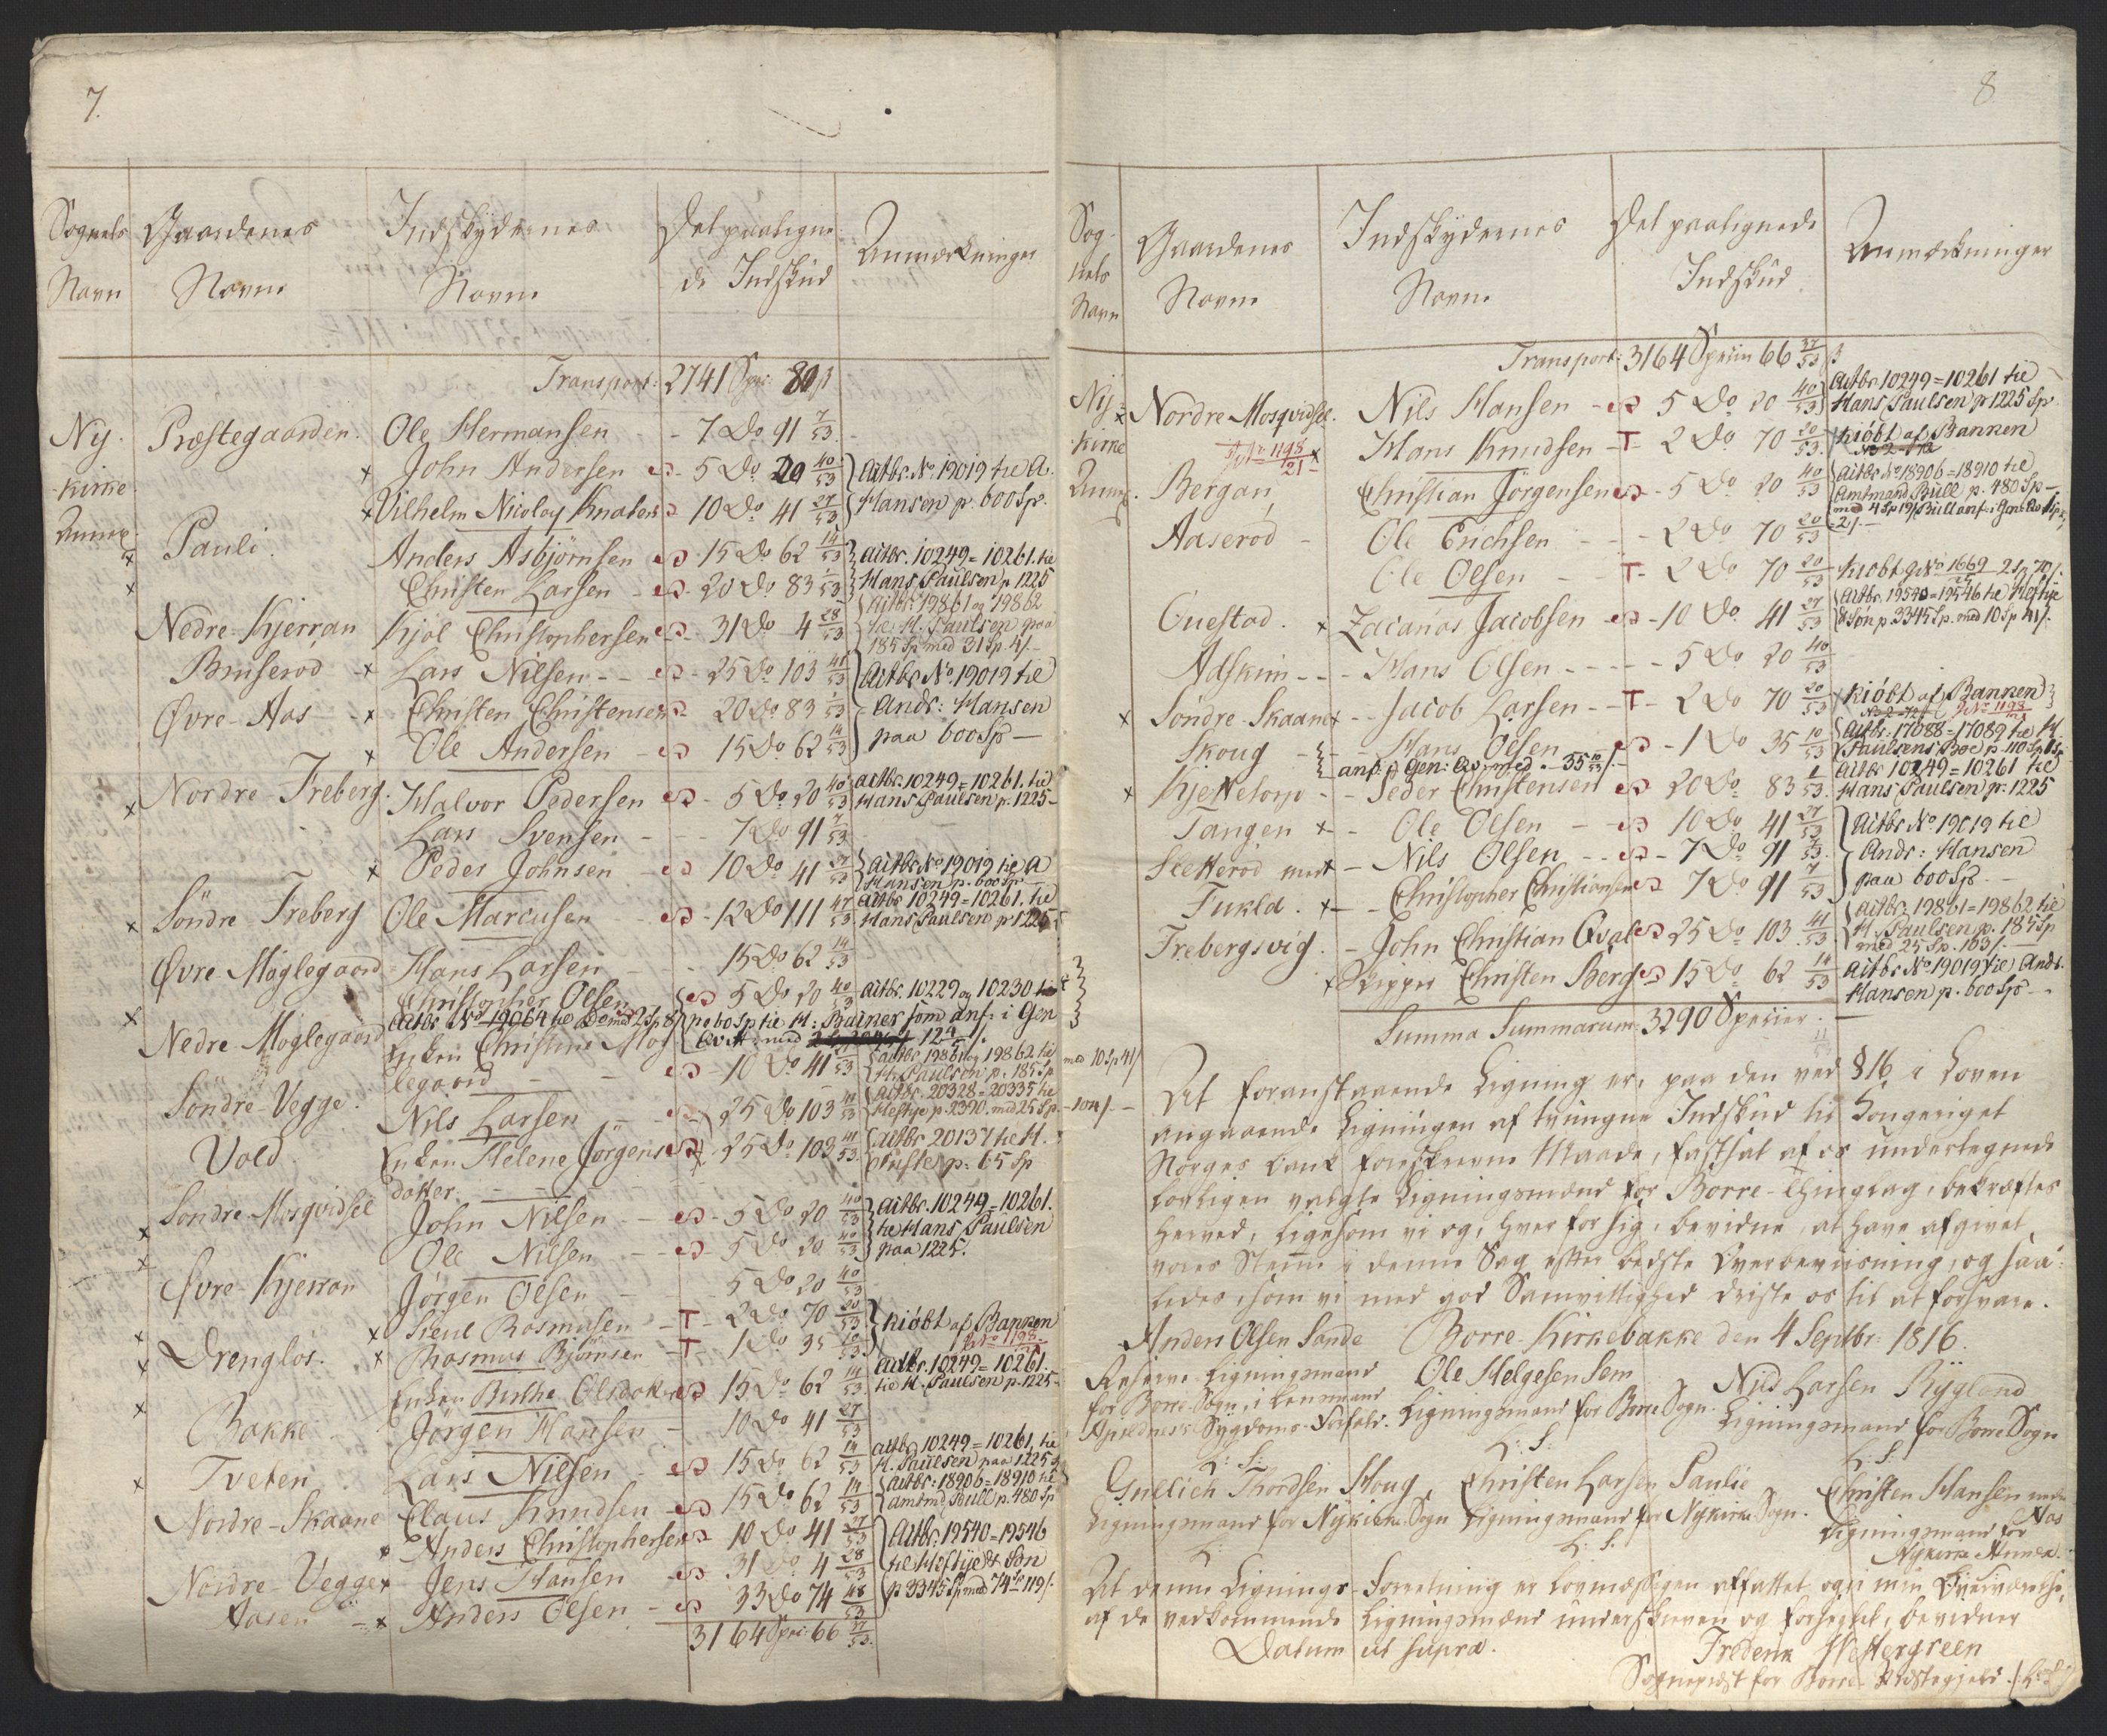 7.
Sognets Gaardenes Indskydernes Det paaligne- Anmærkninger
Navn Navne Navne de Indskud
Transport: 2741 Spec: 80 ß
Ny- Præstegaarden. Ole Hermansen - - 7 Do 91 7/53 -
kirke x John Andersen - 5 Do 20 40/53 Actbr. No. 19019 til A.
x Vilhelm Nicolay Knatens 10 Do 41 27/53 Hansen p. 600 Sp.
Annex Pauli. Anders Asbjørnsen 15 Do 62 14/53 Actbr. 10249=10261. til
x Christen Larsen - 20 Do 83 1/53 Hans Paulsen p 1225
Nedre-Kjerran Kjøl Christophersen 31 Do 4 28/53 Actbr. 19861 og 19862 til H. Paulsen paa 185 Sp med 31 Sp. 4/-
Bruserød x Lars Nilsen - - 25 Do 103 41/53 Actbr No. 19019 til
Øvre-Aas - x Christen Christensen 20 Do 83 1/53 Andr: Hansen
x Ole Andersen - 15 Do 62 14/53 paa 600 Sp -
x Nordre-Freberg. Halvor Pedersen 5 Do 20 40/53 actbr. 10249=10261. til Hans Paulsen p. 1225-
Lars Svensen - - - 7 Do 91 7/53
x Peder Johnsen - 10 Do 41 27/53 Actbr No 19019 til A Hansen p. 600 Sp. -
x Søndre Freberg Ole Marcusen - 12 Do 111 47/53 actbr 10249=10261. til Hans Paulsen p 1225
Øvre Møglegaard - Hans Larsen - - 15 Do 62 14/53
Christopher Olsen 5 Do 20 40/53 actbr. 10229 og 10230 til
x Actbr No 19064 til Do med 2 Sp 8 p 60 Sp til H: Bainer som anf: i Gen
Nedre Møglegaard Enken Christine Møg
legaard - - 10 Do 41 27/53 actbr 19861 og 19862 til H. Paulsen p. 185 Sp med 10 Sp 41/
Søndre-Vegge. Nils Larsen 25 Do 103 41/53 Actbr. 20328=20335 til Heftye p. 2390. med 25 Sp. - 104/-
Vold Enken Helene Jørgens 25 Do 103 41/53 Actbr 20137 til H.
datter. - - p. 65 Sp
x Søndre-Mosqvidsel John Nilsen - 5 Do 20 40/53 Actbr. 10249=10261.
x Ole Nilsen - - 5 Do 20 40/53 til Hans Paulsen paa 1225.
Øvre-Kjerran Jørgen Olsen - 5 Do 20 40/53
x Siul Rasmusen - T - 2 Do 70 20/53 kiøbt af Banken
x Drengløs. x Rasmus Bjørnsen - T 1 Do 35 10/53 No 1198
Enken Birthe Olsdatter 15 Do 62 14/53 Actbr. 10249=10261. til H. Paulsen p. 1225-
x Bakke. Jørgen Hansen - 10 Do 41 27/53
Tveten Lars Nilsen - 15 Do 62 14/53 actbr 10249=10261, til H. Paulsen paa 1225
x Nordre-Skaane Claus Knudsen - 15 Do 62 14/53 Actbr: 18906=18910 til amtmd. Bull p. 480 Sp
x Anders Christophersen 10 Do 41 27/53 Actbr. 19540=19546
Nordre-Vegge x Jens Hansen - 31 Do 4 28/53 til Heftye & Søn
Aasen - x Anders Olsen - 33 Do 74 48/53 p 3345 Sp med 74 Sp 119/.
3164 Spec: 66 37/53.
8
Sog- Gaardenes Indskydernes Det paalignede Anmærkninger
nets
Navn Navne Navne Indskud
Transport: 3164 Speciem 66 37/53 ß
Ny- x Nordre-Mosqvidsel. Nils Hansen - 5 Do 20 40/53 Actbr. 10249=10261 til Hans Paulsen p 1225 Sp.
kirke No 1198/21 x Hans Knudsen - T - 2 Do 70 20/53 kiøbt af Banken
Annex. Bergan, Christian Jørgensen - 5 Do 20 40/53 Actbr No 18906=18910 til Amtmand Bull p. 480 Sp -
Aaserød - Ole Erichsen - - - 2 Do 70 20/53
Ole Olsen - - T - 2 Do 70 20/53 kiøbt No 1669 2 Sp 70/.
Guestad. x Zacarias Jacobsen - 10 Do 41 27/53 Actbr. 19540=19546 til Heftye & Søn p. 3345 Sp. med 10 Sp 41/.
Adskim - - - Hans Olsen - - - - 5 Do 20 40/53
x Søndre-Skaane x - - Jacob Larsen - - T - 2 Do 70 20/53 kiøbt af Banken No 1198
Skoug - - - Hans Olsen - 1 Do 35 10/53 Actbr. 17088=17089 til H. Paulsens Boe p. 110 Sp 1 Sp
anf. i Gen: Qv: med - 35 10/53 /.
x Kjettetorp - - Peder Christensen 20 Do 83 1/53 Actbr 10249=10261 til Hans Paulsen p. 1225
Tangen x - Ole Olsen - - 10 Do 41 27/53 Actbr No 19019 til
Sletterød mut x - Nils Olsen - - 7 Do 91 7/53 Andr: Hansen
Fukla. x - - Christopher Christiansen 7 Do 91 7/53 paa 600 Sp. -
Frebergsvig. - John Christian Qval 25 Do 103 41/53 Actbr. 19861=19862 til H. Paulsen p. 185 Sp med 25 Sp. 103/. -
x Skipper Christen Berg 15 Do 62 14/53 Actbr No 19019 til Andr. Hansen p. 600 Sp -
Summa Summarum: 3290 Specier.
Det foranstaaende Ligning er, paa den ved § 16 i Loven
angaaende Ligningen af tvungne Indskud til Kongeriget
Norges Bank foreskrevne Maade, fastsat af os undertegnede
lovligen valgte Ligningsmænd for Borre-Thinglag, bekræftes
herved, ligesom vi og, hver for sig, bevidne, at have afgivet
vores Stemme i denne Sag efter bedste Overbeviisning, og saa-
ledes, som vi med god Samvittighed driste os til at forsvare.
Anders Olsen Sande Borre-Kirkebakke den 4 Septbr: 1816.
Reserve-Ligningsmand Ole Helgesen Sem Nils Larsen Rÿgland
for Borre-Sogn, i Lensmand Ligningsmand for Borre Sogn. Ligningsmand for Borre Sogn
Sygdoms-Forfald. L: S: L: S:
L: S:
Gullich Thordsen Houg, Christen Larsen Paulie Christen Hansen nedre Aas
Ligningsmand for Nykirke Sogn Ligningsmand for Nykirke Sogn. Ligningsmand for
L: S. Nykirke Annex.
At denne Lignings-Forretning er lovmæssigen affattet, og i min Overværelse,
af de vedkommende Ligningsmænd underskreven og forseglet, bevidner
Datum ut supra. Frederik Westergreen
Sognepræst for Borre Præstegjeld. (L:S:)